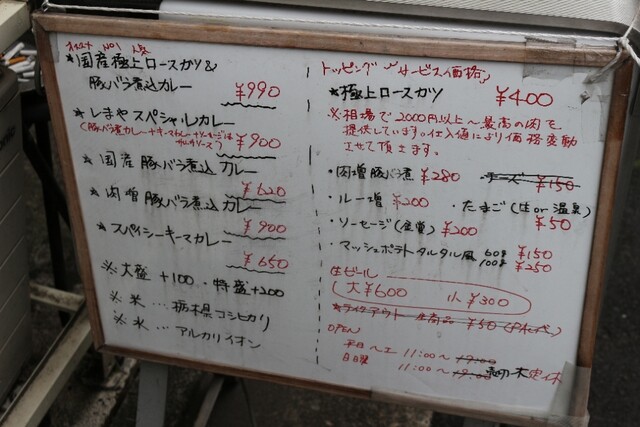 No1
*国産極上ロースカツ&
豚バラ煮込カレー ¥990
*しまや スペシャルカレー
(豚バラ煮カレー+キーマカレー ¥900
*国産豚バラ煮込 カレー
¥620
*肉増豚バラ煮込 カレー
¥900
*スパイシーキーマカレー
¥650
※大盛 +100・特盛+200
※米…栃木県コシヒカリ
※水…アルカリイオン
トッピング サービス価格
*極上ロースカツ ¥400
※相場で2000円以上〜最高の肉を
提供しています。仕入値により価格変動
させて頂ます。
・肉増豚バラ煮 ¥280 チーズ ¥150
・ルー増 ¥200 ・たまご(生or温泉)
・ソーセージ ¥200 ¥50
・マッシュポテトタルタル風 60g ¥150
100g ¥250
生ビール
大¥600 小¥300
*テイクアウト 全商品 ¥50
OPEN
平日〜土 11:00〜19:00
日曜 11:00〜 木定休